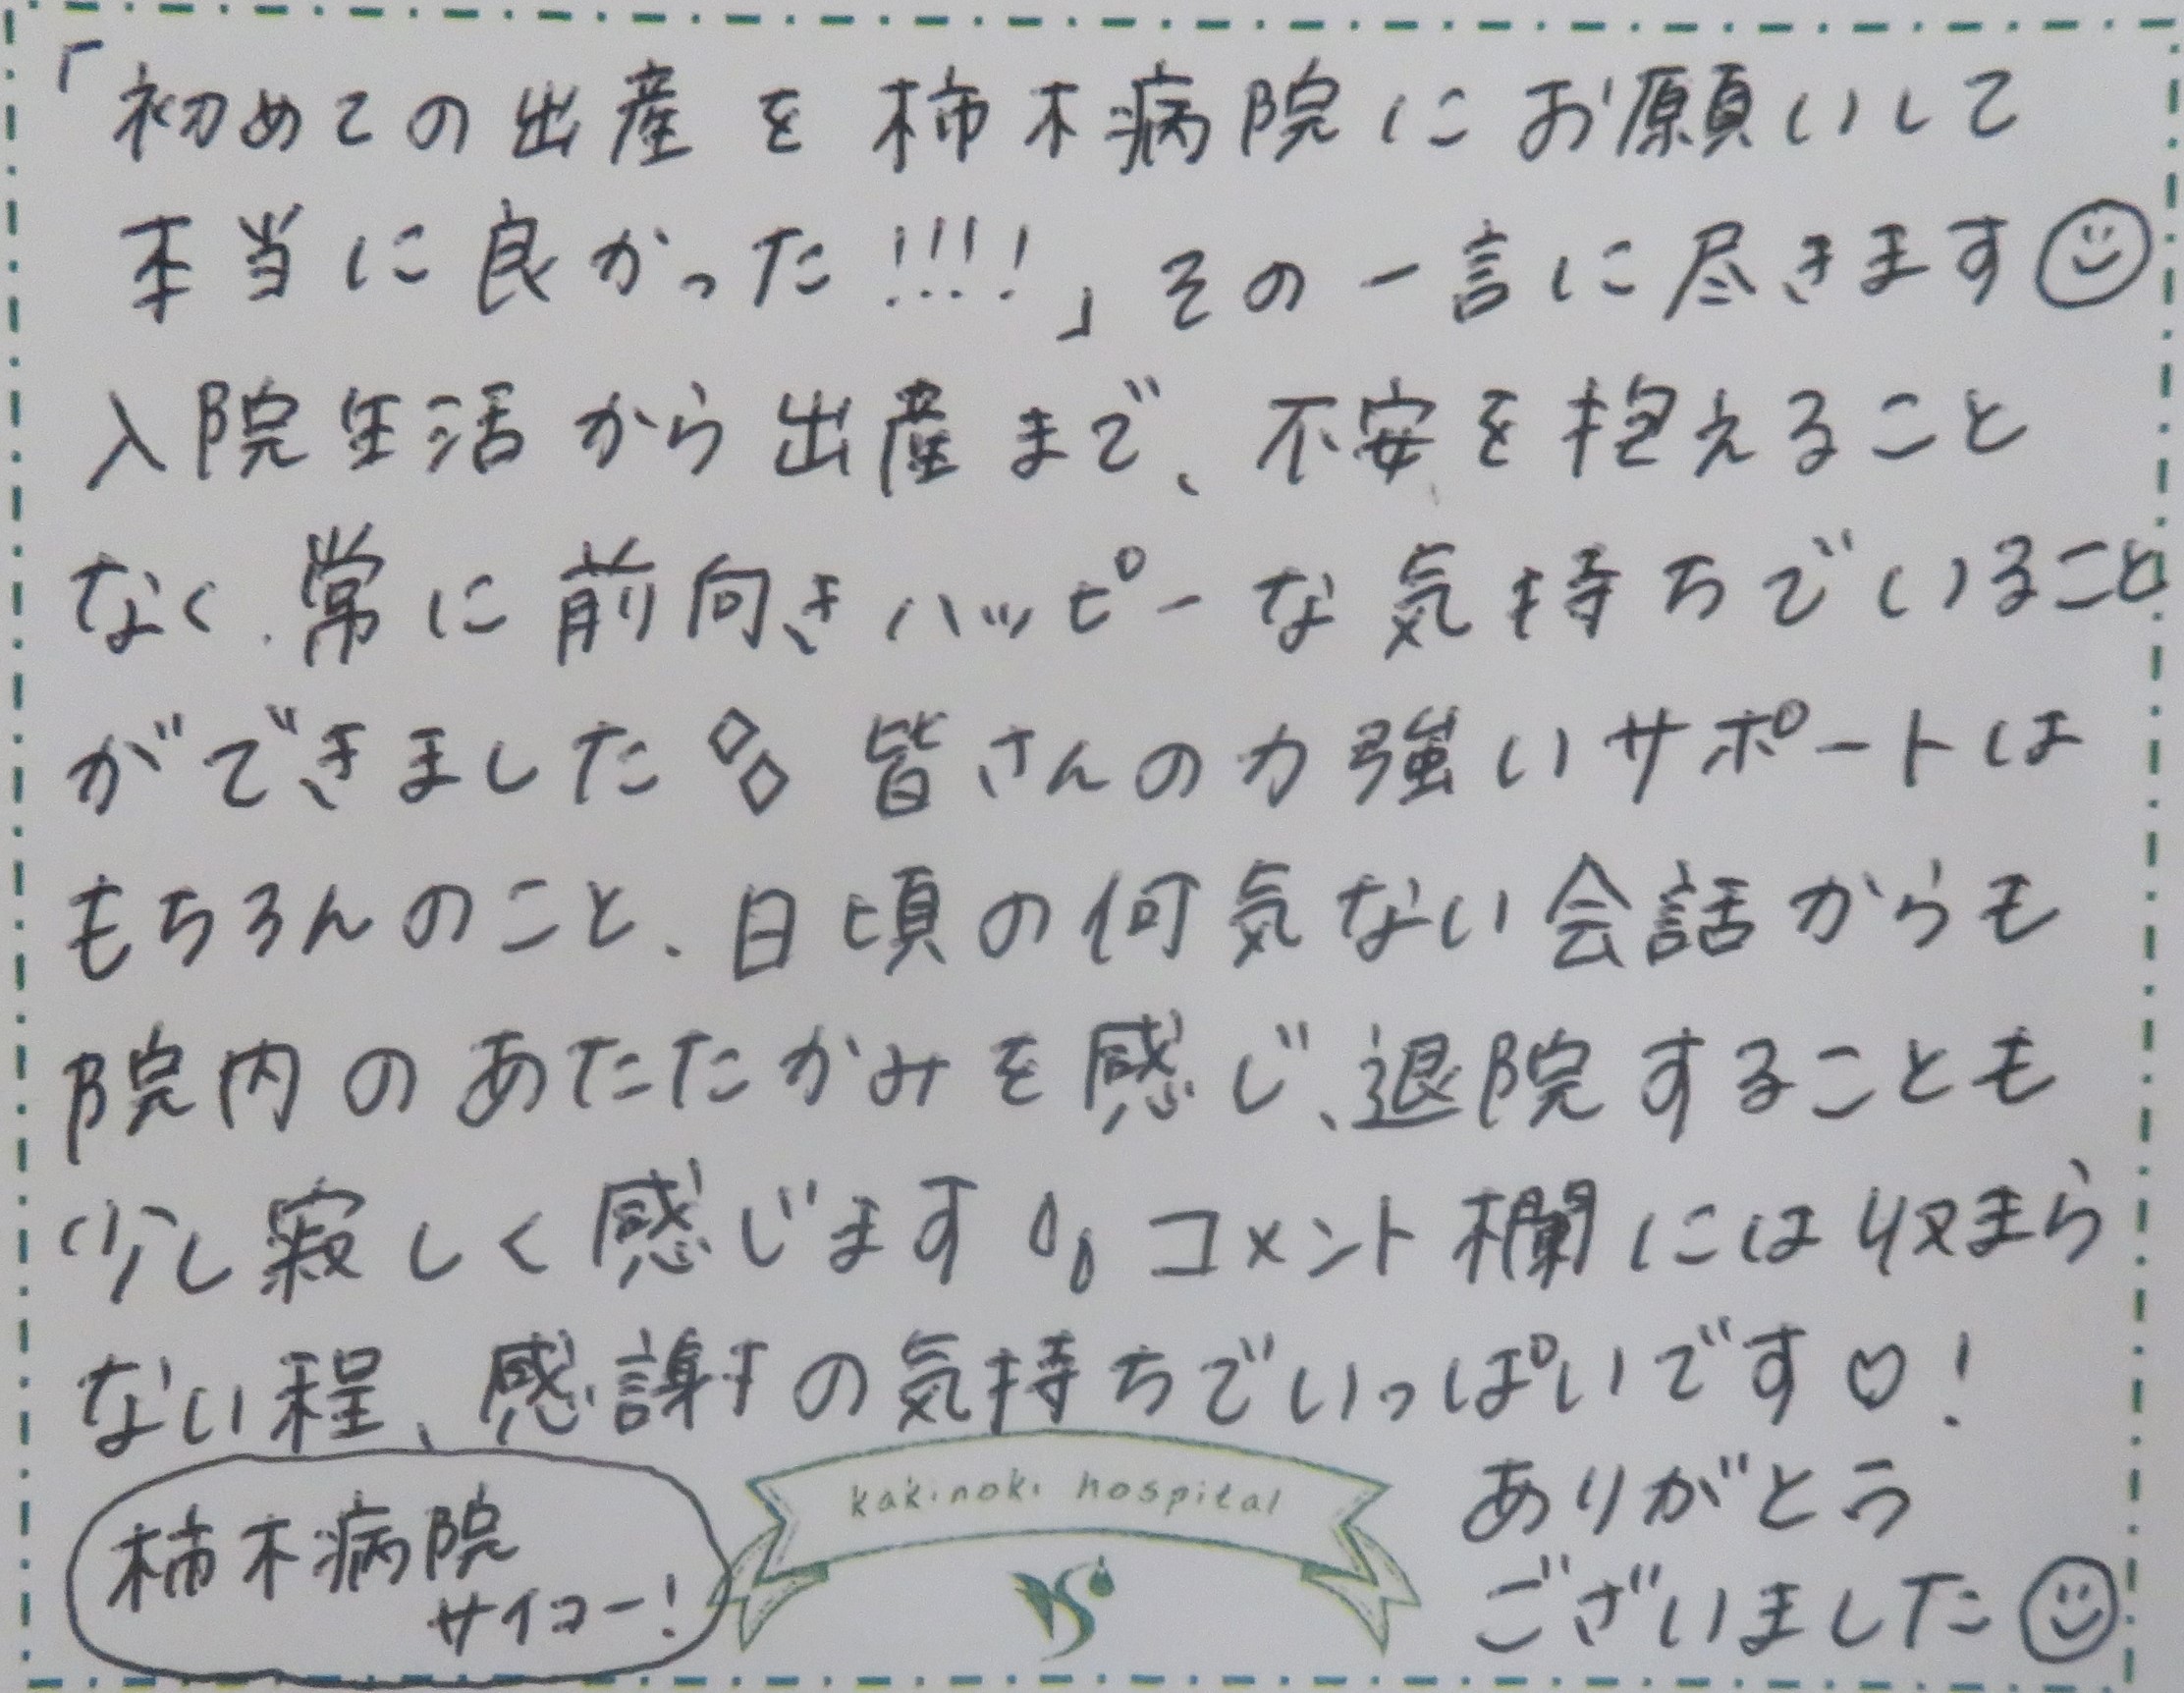 「初めての出産を柿木病院にお願いして
本当に良かった!!!!」その一言に尽きます
入院生活から出産まで、不安を抱えること
なく、常に前向きハッピーな気持ちでいること
ができました 皆さんの力強いサポートは
もちろんのこと、日頃の何気ない会話からも
院内のあたたかみを感じ、退院することも
少し寂しく感じます。コメント欄には収まら
ない程、感謝の気持ちでいっぱいです♡!
ありがとう
ございました
柿木病院
サイコー!
kakinoki hospital